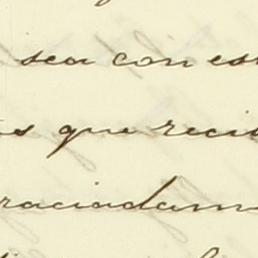 sea con es
que reci
raciadam